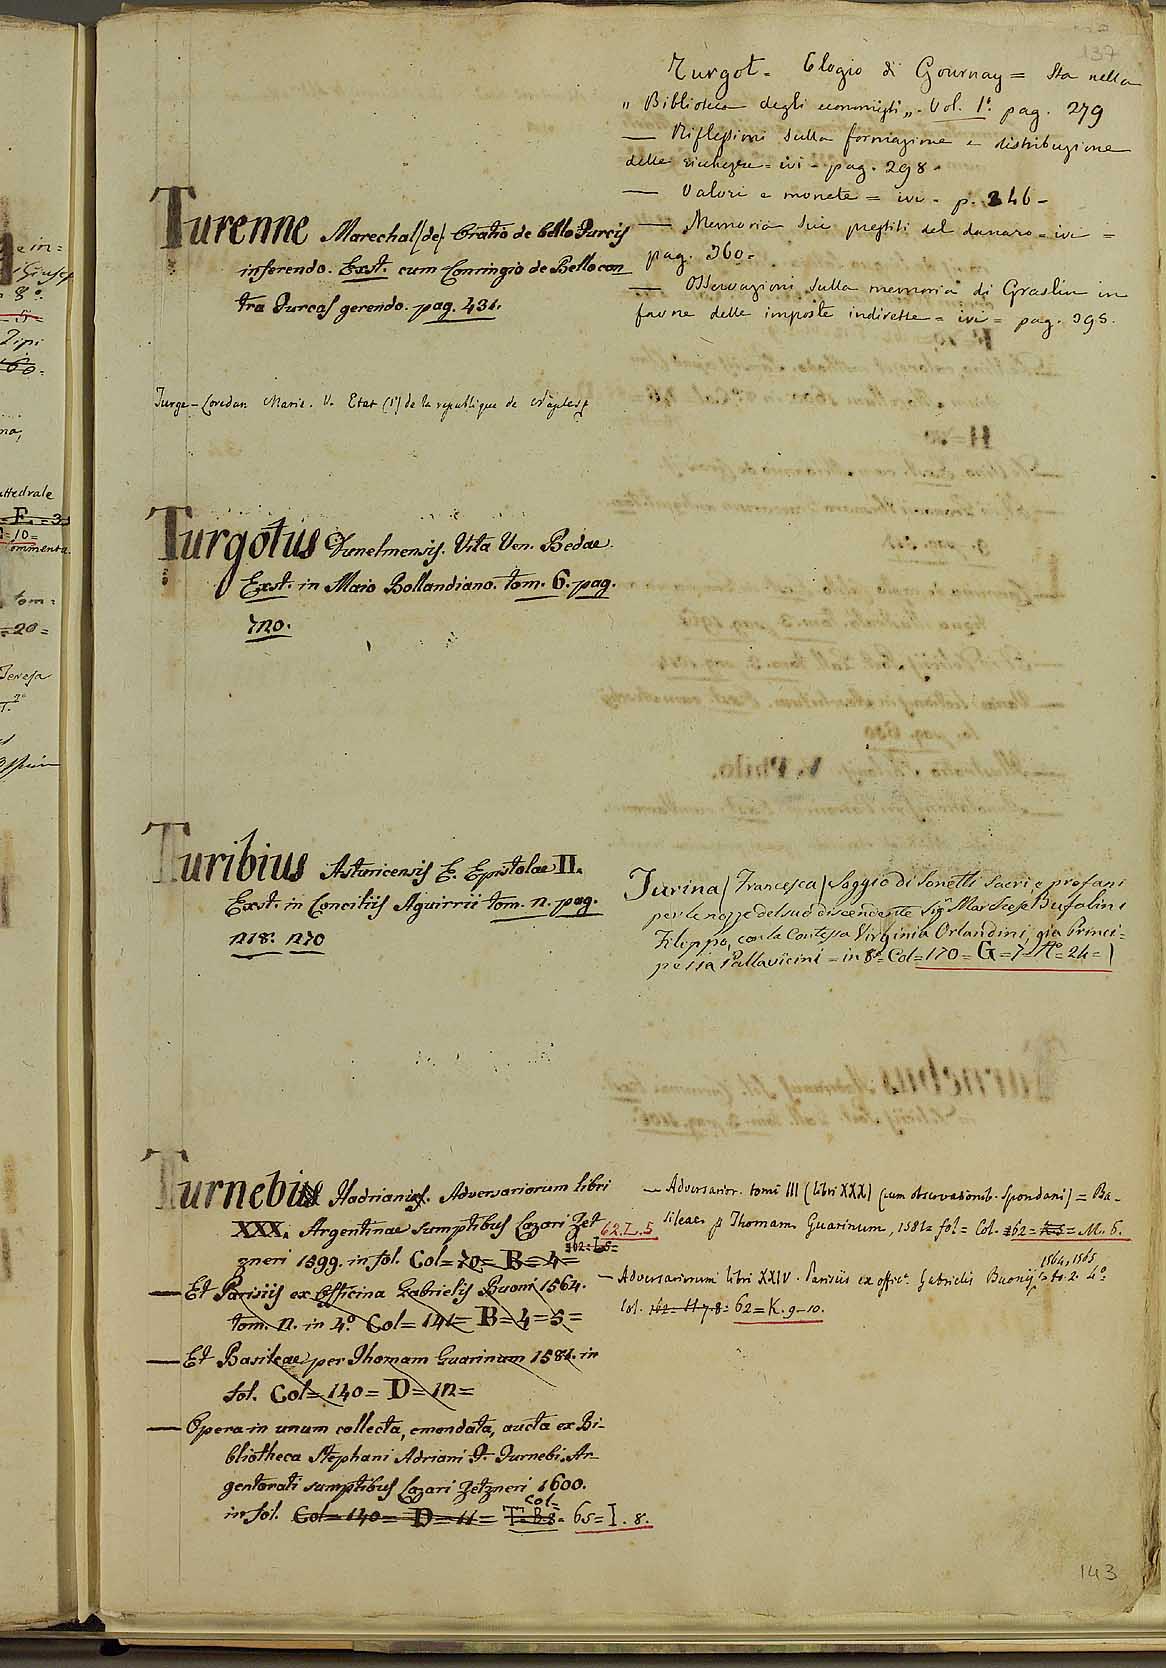 137
Turgot - Elogio di Gournay = Sta nella
„ Biblioteca degli economisti „ - Vol. 1°. pag. 279
— Riflessioni sulla formazione e distribuzione
delle ricchezze = ivi - pag. 298 -
— Valori e monete = ivi - p. 346 -
— Memoria sui prestiti del danaro = ivi =
pag. 360 -
— Osservazioni sulla memoria di Graslin in
favore delle imposte indirette = ivi = pag. 395.
Turenne Marechal (de) Oratio de bello Turcis
inferendo. Exst. cum Conringio de Bello con
tra Turcas gerendo. pag. 431.
Turge-Loredan Marie. V. Etat (l') de la republique de Naples
Turgotus Dunelmensis. Vita Ven. Bedae.
Exst. in Maio Bollandiano. tom. 6. pag.
720.
Turibius Asturicensis E. Epistolae II.
Exst. in Conciliis Aguirrii tom. 2. pag.
218. 220
Turina (Francesca) Saggio di Sonetti Sacri, e profani
per le nozze del suo discendente Sig. Marchese Bufalini
Filippo, con la Contessa Virginia Orlandini, già Princi=
pessa Pallavicini = in 8° = Col = 170 = G = 7 = A° = 24 = )
Turnebus Hadrianus. Adversariorum libri
XXX. Argentinae sumptibus Lazari Zet
62. L. 5
zneri 1599. in fol. Col = 70 = B = 4 =
— Et Parisiis ex Officina Gabrielis Buoni 1564.
tom. 2. in 4.° Col = 141 = B = 4 = 5 =
— Et Basileae per Thomam Guarinum 1581. in
fol. Col = 140 = D = 12 =
— Opera in unum collecta, emendata, aucta ex Bi-
bliotheca Stephani Adriani F. Turnebi. Ar-
gentorati sumptibus Lazari Zetzneri 1600.
Col =
in fol. Col = 140 = D = 11 = T. B. 8 = 65 = I. 8.
— Adversarior. tomi III (libri XXX) (cum observationib. Spondani) = Ba-
sileae p Thomam Guarinum, 1581 = fol = Col. 162 = = M. 6.
1564, 1565
— Adversariorum libri XXIV. Parisiis ex offic. Gabrielis Buonij to. 2. 4°
Col. 162 = H 7. 8 = 62 = K. 9-10.
143